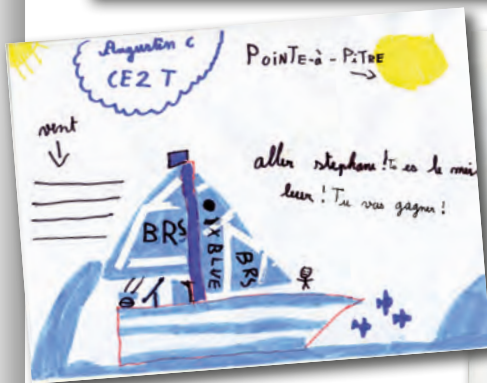 Augustin C
CE2 T
POINTE-à-PITRE
vent
aller stephane! Tu es le mei
leur! Tu vas gagner!
BRS
XX BLUE
BRS